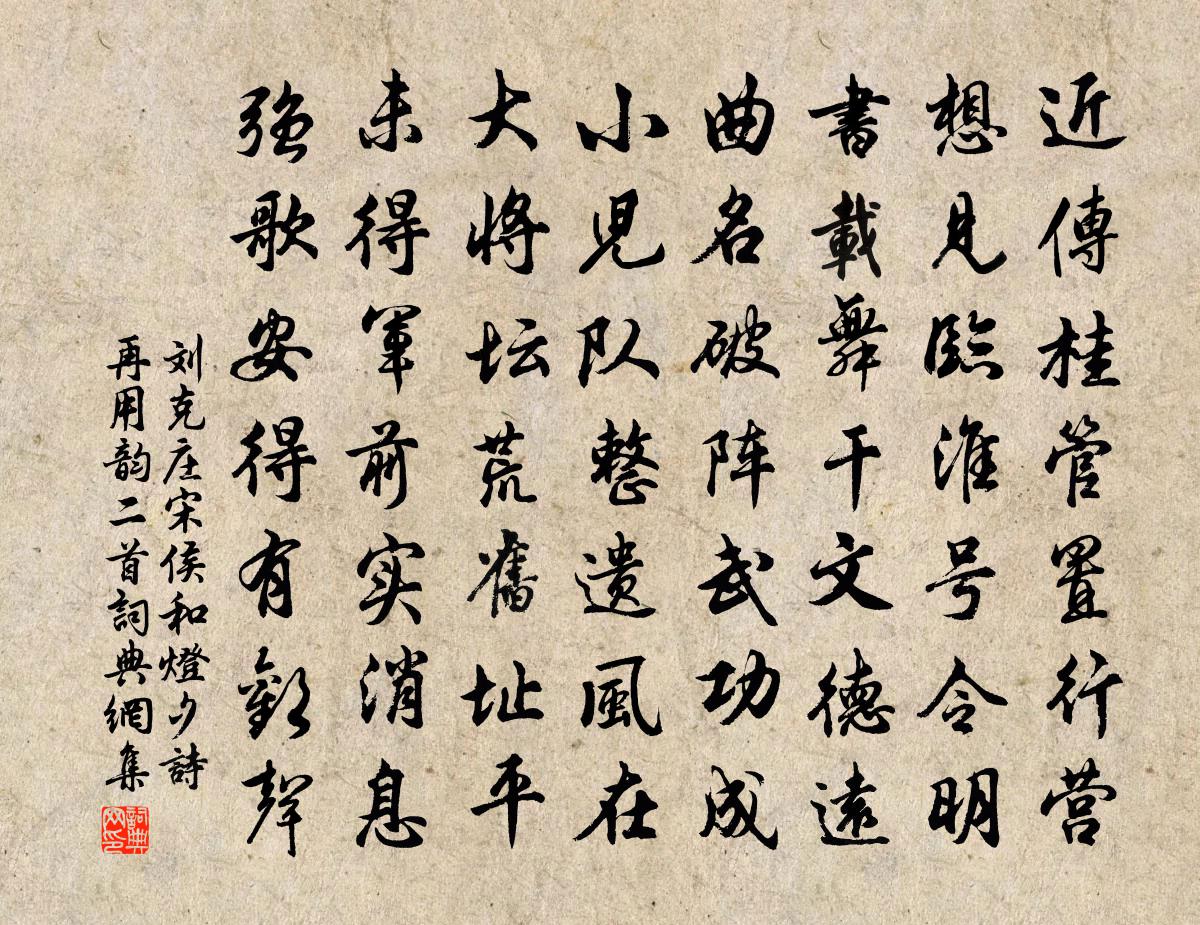 近傳桂管置行营
想見臨淮号令明
書載舞干文德遠
曲名破阵武功成
小児队整遗風在
大将坛荒舊址平
未得军前实消息
强歌安得有歡聲
刘克庄宋侯和燈夕詩
再用韵二首詞典網集
詞典